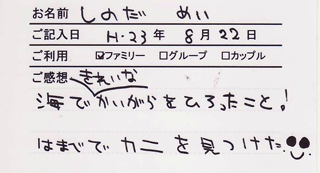 お名前 しのだ めい
ご記入日 H・23年 8月22日
ご利用 ☑ファミリー □グループ □カップル
ご感想 きれいな
海でかいがらをひろったこと!
はまべでカニを見つけた